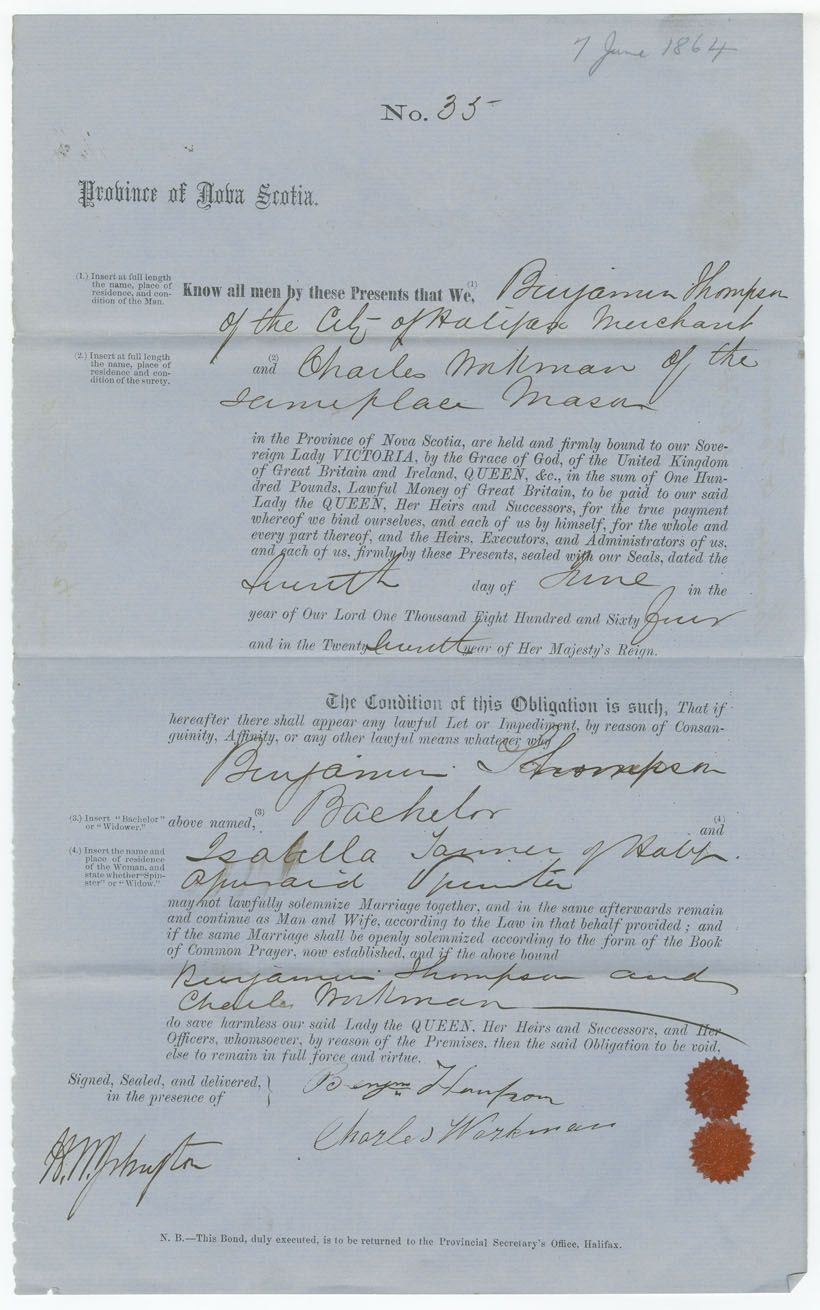 7 June 1864
No. 35
Province of Nova Scotia.
(1.) Insert at full length
the name, place of
residence, and con-
dition of the Man.
Know all men by these Presents that We, (1) Benjamin Thompson
of the City of Halifax Merchant
(2.) Insert at full length
the name, place of
residence and con-
dition of the surety.
(2)
and Charles Workman of the
same place Mason
in the Province of Nova Scotia, are held and firmly bound to our Sove-
reign Lady VICTORIA, by the Grace of God, of the United Kingdom
of Great Britain and Ireland, QUEEN, &c., in the sum of One Hun-
dred Pounds, Lawful Money of Great Britain, to be paid to our said
Lady the QUEEN, Her Heirs and Successors, for the true payment
whereof we bind ourselves, and each of us by himself, for the whole and
every part thereof, and the Heirs, Executors, and Administrators of us,
and each of us, firmly by these Presents, sealed with our Seals, dated the
Seventh day of June in the
year of Our Lord One Thousand Eight Hundred and Sixty four
and in the Twenty Seventh year of Her Majesty's Reign.
The Condition of this Obligation is such, That if
hereafter there shall appear any lawful Let or Impediment, by reason of Consan-
guinity, Affinity, or any other lawful means whatever why
Benjamin Thompson
(3.) Insert "Bachelor"
or "Widower."
above named, (3) Bachelor (4)
and
(4.) Insert the name and
place of residence
of the Woman, and
state whether "Spin-
ster" or "Widow."
Isabella Tanner of Halifx.
aforesaid Spinster
may not lawfully solemnize Marriage together, and in the same afterwards remain
and continue as Man and Wife, according to the Law in that behalf provided; and
if the same Marriage shall be openly solemnized according to the form of the Book
of Common Prayer, now established, and if the above bound
Benjamin Thompson and
Charles Workman
do save harmless our said Lady the QUEEN, Her Heirs and Successors, and Her
Officers, whomsoever, by reason of the Premises, then the said Obligation to be void,
else to remain in full force and virtue.
Signed, Sealed, and delivered,
in the presence of
Benjmn Thompson
Charles Workman
N. B.—This Bond, duly executed, is to be returned to the Provincial Secretary's Office, Halifax.